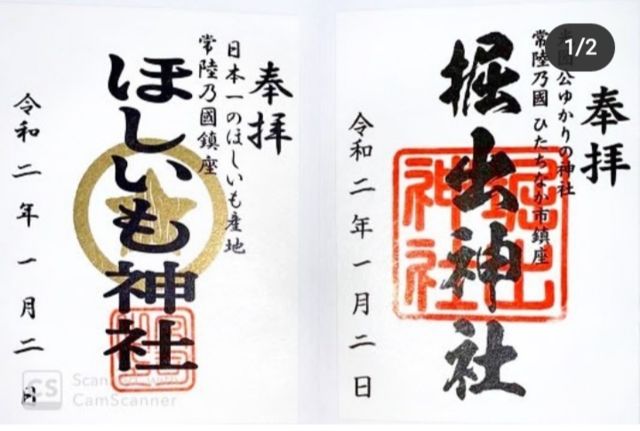 奉拝
日本一のほしいも産地
常陸乃國鎮座
ほしいも神社
令和二年一月二日
CS
Scanned with
CamScanner
1/2
奉拝
公ゆかりの神社
常陸乃國 ひたちなか市鎮座
堀出神社
堀出
神社
令和二年一月二日